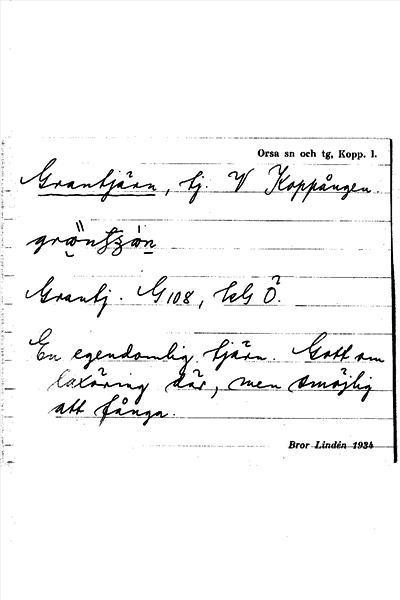 Orsa sn och tg, Kopp. l.
Grantjärn, tj. V Koppången.
Grantj. G108, bG Ö.
En egendomlig tjärn. Gott om
laxöring där, men omöjlig
att fånga.
Bror Lindén 1934